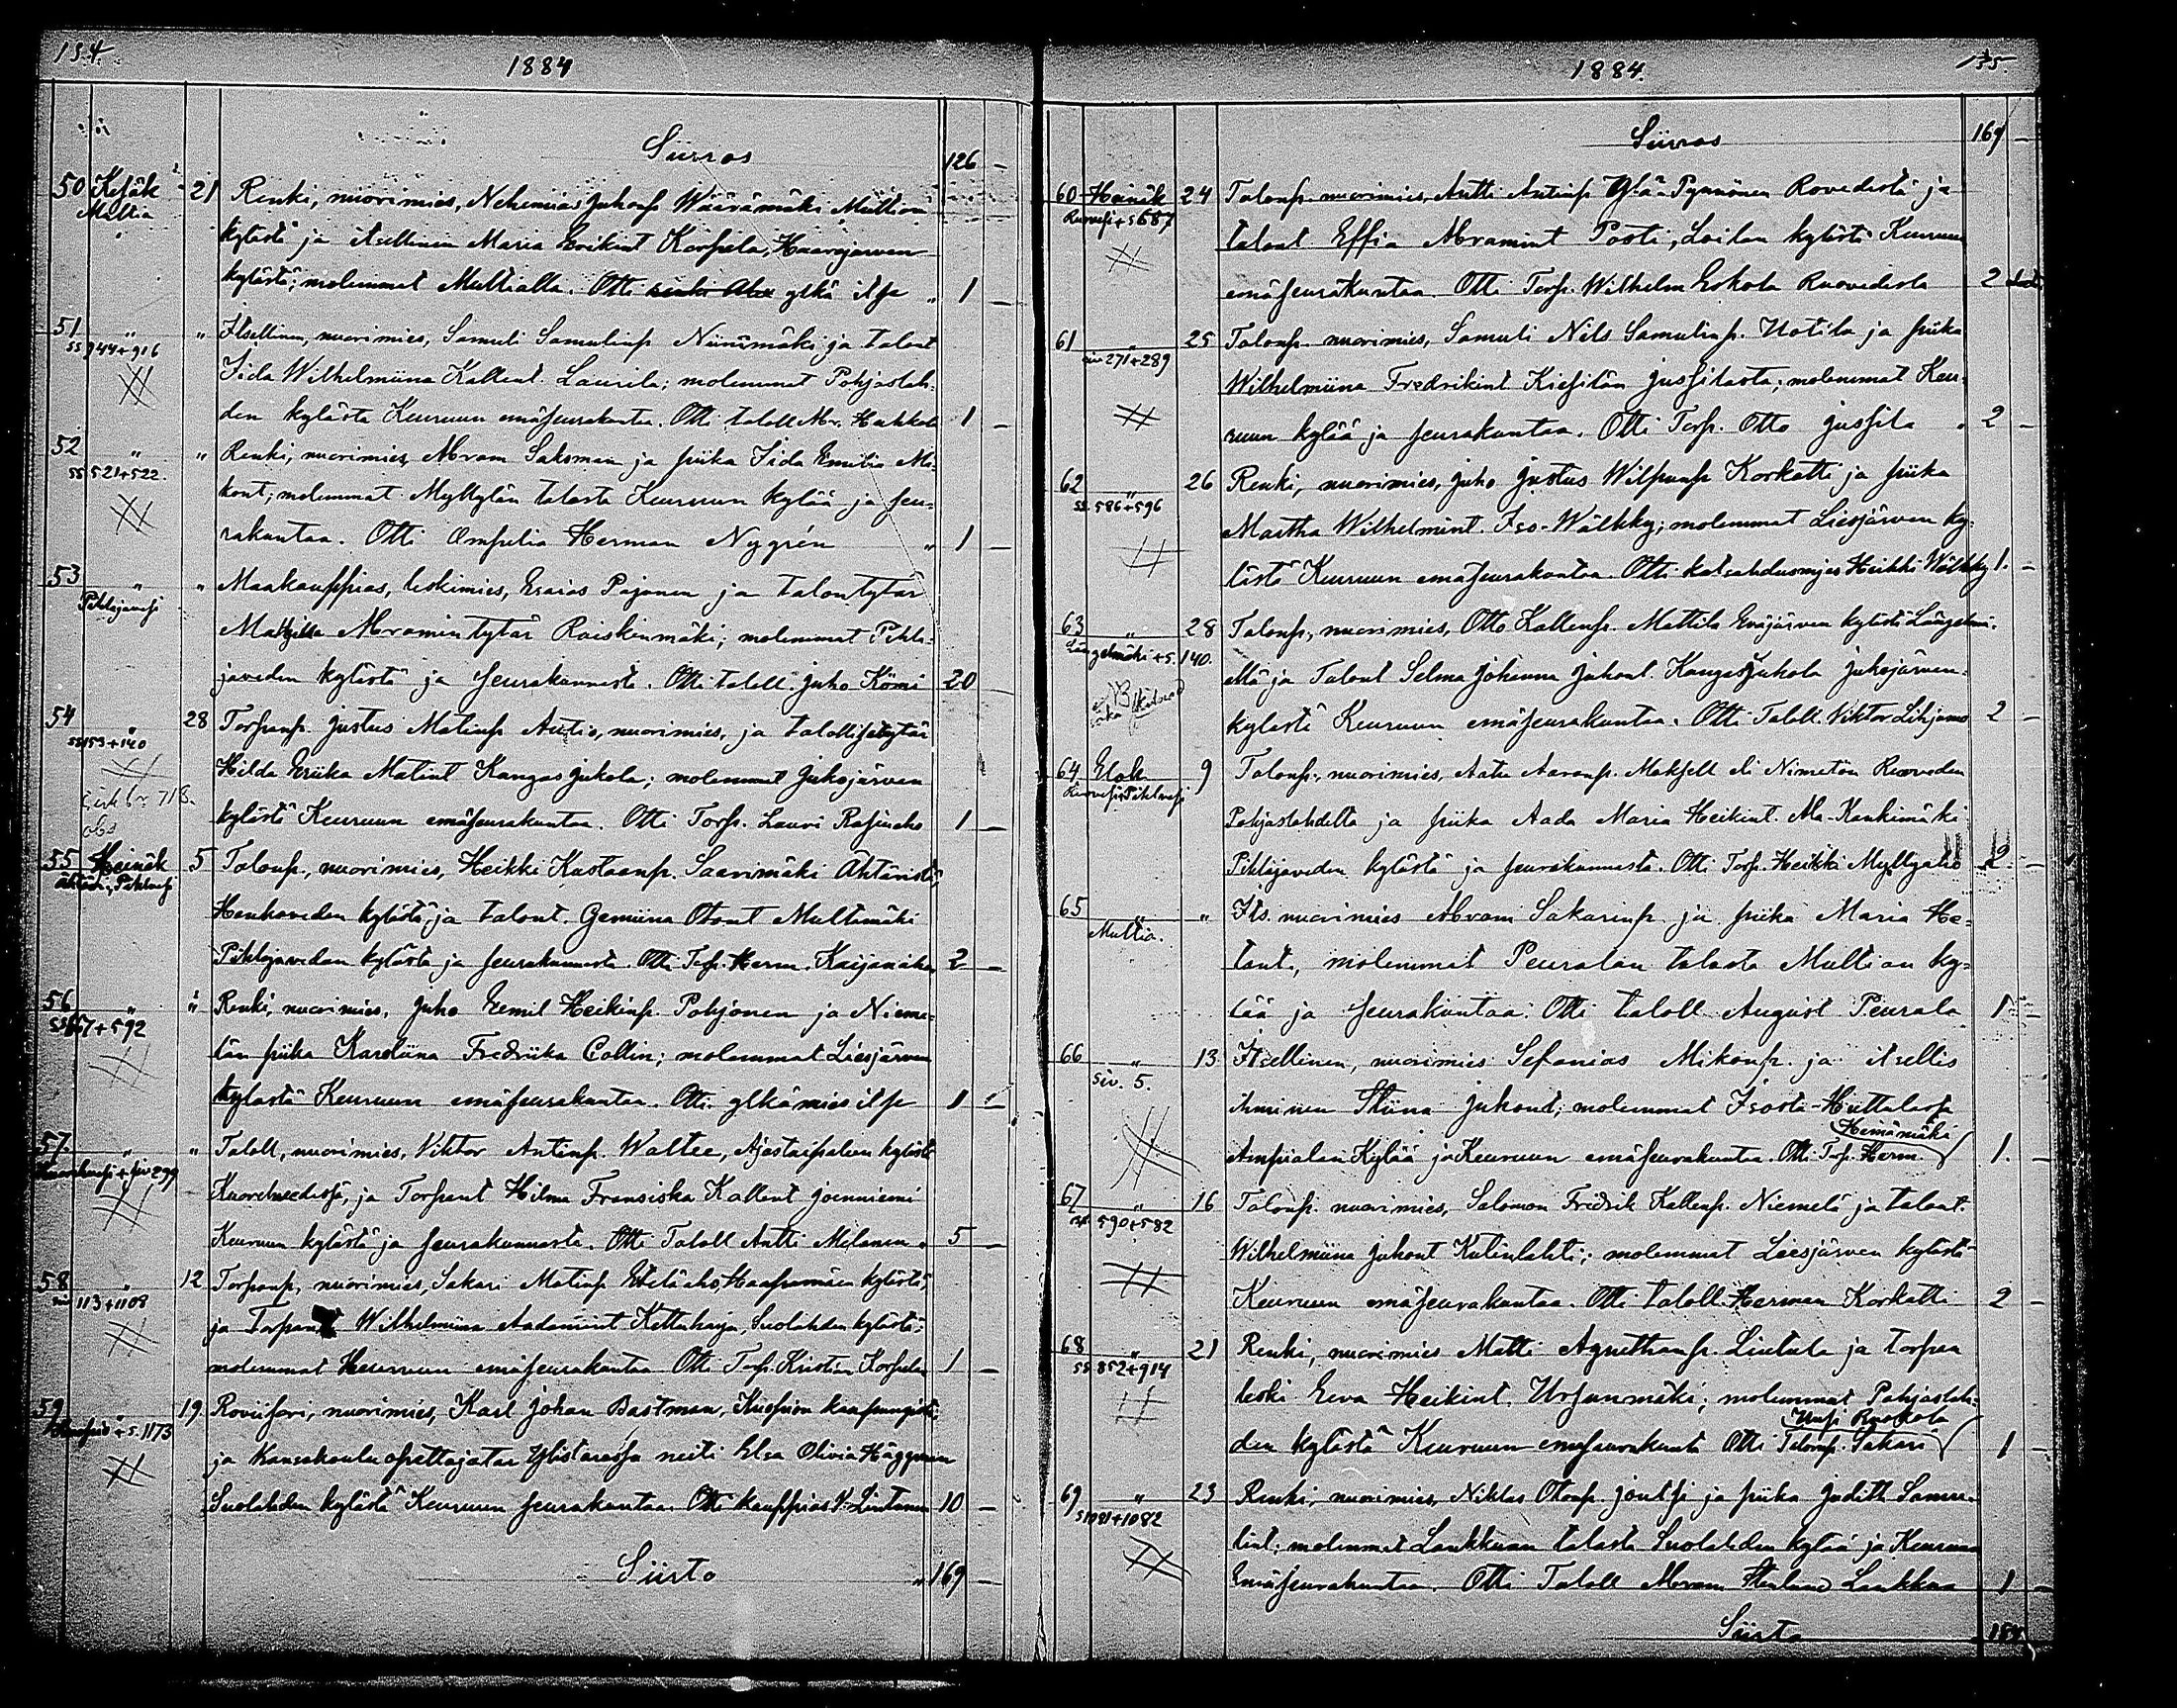 154.
1884
Siirros 126 —
50 Kesäk 21 Renki, nuorimies, Nehemias Juhonp Wäärämäki Multian
Multia
kylästä ja itsellinen Maria Erikint Korpela, Haarajärven
kylästä; molemmat Multialla. Otti ylkä itse " 1 —
51 " " Itsellinen, nuorimies, Samuli Samulinp Niinimäki ja talont
ss 944+916
Iida Wilhelmiina Kallent. Laurila; molemmat Pohjaslah-
den kylästä Keuruun emäseurakuntaa. Otti taloll Abr. Huhkola 1 —
52 " " Renki, nuorimies, Abram Saksman ja piika Iida Emilia Mi-
ss 521+522.
kont; molemmat Myllylän talosta Keuruun kylää ja seu-
rakuntaa. Otti Ompelia Herman Nygrén " 1 —
53 " " Maakauppias, leskimies, Esaias Pajonen ja talontytär
Pihlajavesi
Matilda Abramintytär Raiskinmäki; molemmat Pihla-
javeden kylästä ja seurakunnasta. Otti taloll. Juho Kömi 20
54 " 28 Torpanp. Justus Matinp Autio, nuorimies, ja talollisetytär
ss 153+140
Hilda Eriika Matint Kangas Jukola; molemmat Jukojärven
718.
kylästä Keuruun emäseurakuntaa. Otti Torp. Lauri Rasinaho 1 —
obs
55 Heinäk 5 Talonp., nuorimies, Heikki Kustaanp. Saarimäki Ähtäristä,
Ähtäri, Pihlvesi
Hankaveden kylästä, ja talont. Gemiina Otont Multamäki
Pihlajaveden kylästä ja seurakunnasta. Otti Torp. Herm. Kaijanaho 2 —
56 " " Renki, nuorimies, Juho Eemil Heikinp. Pohjonen ja Nieme-
ss 567+592
län piika Karoliina Fredriika Collin; molemmat Liesjärven
kylästä Keuruun emäseurakuntaa. Otti ylkämies itse 1 —
57. " " Taloll, nuorimies, Viktor Antinp. Waltee, Ajostaipaleen kylästä
siv 299
ja Torpant Hilma Fransiska Kallent Joenniemi
Keuruun kylästä ja seurakunnasta. Otti Taloll Antti Milanen " 5 —
58 " 12 Torpanp, nuorimies, Sakari Matinp Eteläaho, Haapamäen kylästä,
siv 113+1108
ja Torpant Wilhelmiina Aadamint Kettuharju, Suolahden kylästä;
molemmat Keuruun emäseurakuntaa Otti Torp. Kristian Korpela 1 —
59 " 19 Roviisori, nuorimies, Karl Johan Bastman, Kuopion kaupungista
Kuopio + s. 1173
ja kansakoulu opettajatar Ylistarossa neiti Elsa Olivia Häggman
Suolahden kylästä Keuruun seurakuntaa. Otti kauppias V. Lintunen 10 —
Siirto " 169 —
135.
1884.
Siirros 169 —
60 Heinäk 24 Talonp. nuorimies, Antti Antinp Ylä-Pynnönen Rovedestä ja
Ruovesi + s 687
talont Effia Abramint Posti, Loilan kylästä Keuruun
emäseurakuntaa. Otti Torp. Wilhelm Eskola Ruovedestä 2
61 " 25 Talonp. nuorimies, Samuli Nils Samulinp. Uotila ja piika
siv 271+289
Wilhelmiina Fredrikint Kiesilän Jussilasta; molemmat Keu-
ruun kylää ja seurakuntaa. Otti Torp. Otto Jussila " 2 —
62 " 26 Renki, nuorimies, Juho Justus Wilpunp Korkatti ja piika
ss. 586+596
Martha Wilhelmint. Iso-Wälkky; molemmat Liesjärven ky-
lästä Keuruun emäseurakuntaa. Otti katsahdusmies Heikki Wälkky 1. —
63 " 28 Talonp, nuorimies, Otto Kallenp. Mattila Eväjärven kylästä Längelmä-
Längelmäki + s. 140.
eltä ja Talont Selma Johanna Juhont. Kangas Jukola Jukojärven
kylästä Keuruun emäseurakuntaa. Otti Taloll. Viktor Lihjamo 2 —
64 Elok 9 Talonp., nuorimies, Aatu Aaronp. Maksell eli Nimetön Ruoveden
Ruovesi, Pihlvesi
Pohjaslahdelta ja piika Aada Maria Heikint. Ala-Kankimäki
Pihlajaveden kylästä ja seurakunnasta. Otti Torp. Heikki Myllyaho 2 —
65 " " Its. nuorimies Abram Sakarinp. ja piika Maria He-
Multia.
tant., molemmat Peuralan talosta Multian ky-
lää ja seurakuntaa. Otti taloll August Peurala 1 —
66 " 13 Itsellinen, nuorimies Sefanias Mikonp. ja itsellis
siv. 5.
ihminen Stiina Juhont; molemmat Isosta-Huttulasta
Heinämäki
Ampialan Kylää ja Keuruun emäseurakuntaa. Otti Torp. Herm. 1. —
67 " 16 Talonp. nuorimies, Salomon Fredrik Kallenp. Niemelä ja talont.
590+582
Wilhelmiina Juhont Kutinlahti; molemmat Liesjärven kylästä
Keuruun emäseurakuntaa. Otti taloll. Herman Korkatti 2 —
68 " 21 Renki, nuorimies Matti Agnethanp. Liulula ja torpan
ss 852+914
leski Eeva Heikint. Urpunmäki; molemmat Pohjaslah-
Uusi Ruokola
den kylästä Keuruun emäseurakuntaa Otti Talonp. Sakari 1 —
69 " 23 Renki, nuorimies, Niklas Otonp. Joutsi ja piika Judith Samu-
s 1081+1082
lint; molemmat Laukkuan talosta Suolahden kylää ja Keuruun
Emäseurakuntaa. Otti Taloll Abram Haglund Laukkaa 1 —
Siirto